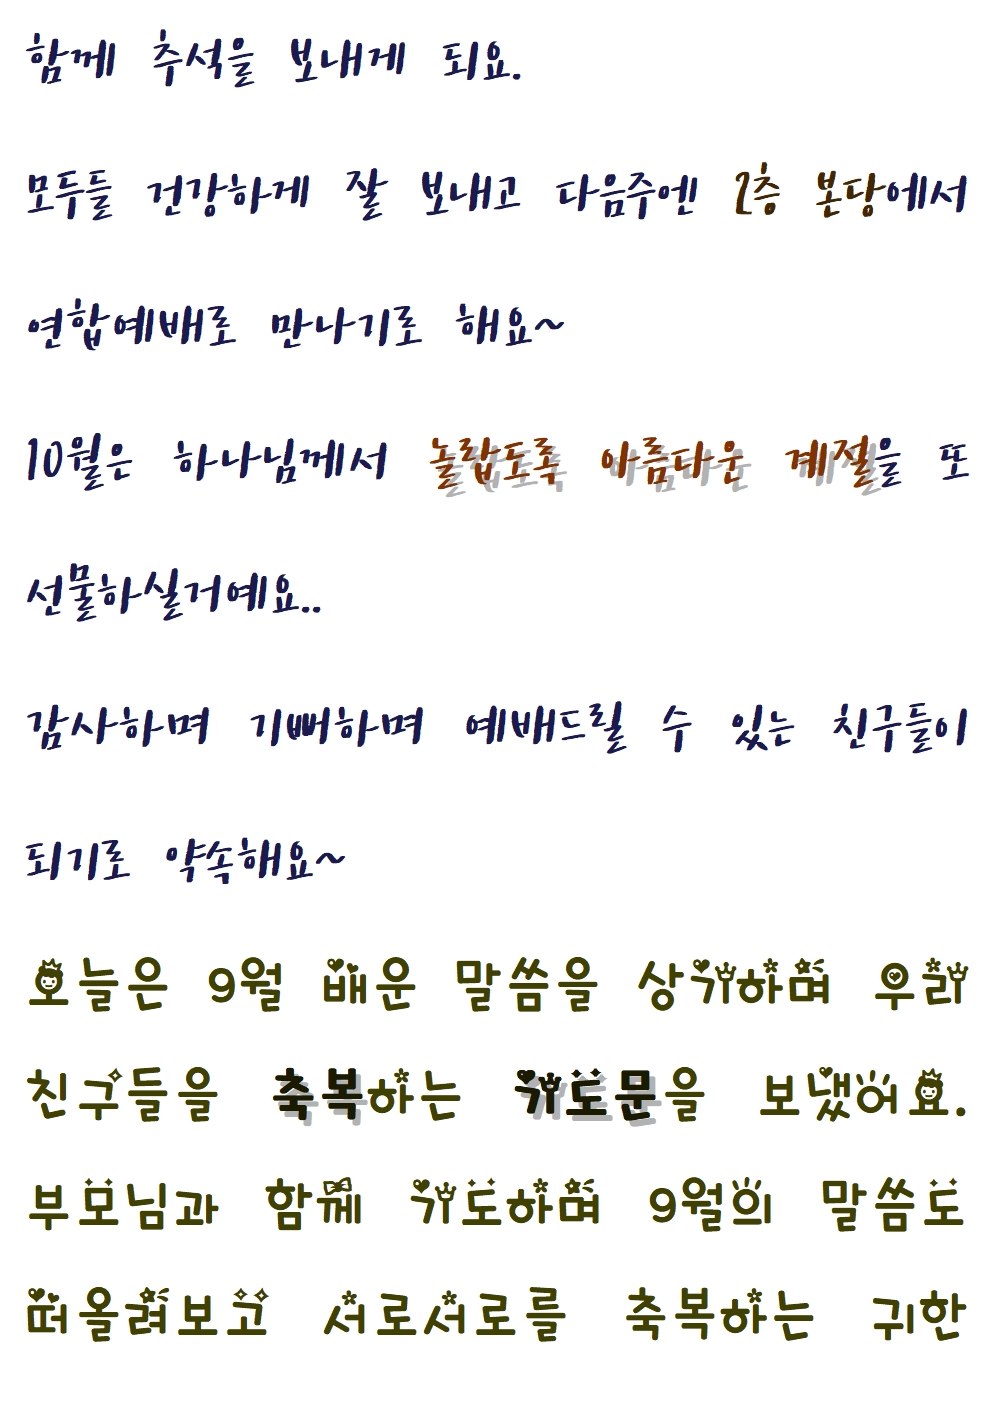 함께 추석을 보내게 되요.
모두들 건강하게 잘 보내고 다음주엔 2층 본당에서
연합예배로 만나기로 해요~
10월은 하나님께서 놀랍도록 아름다운 계절을 또
선물하실거예요..
감사하며 기뻐하며 예배드릴 수 있는 친구들이
되기로 약속해요~
오늘은 9월 배운 말씀을 상기하며 우리
친구들을 축복하는 기도문을 보냈어요.
부모님과 함께 기도하며 9월의 말씀도
떠올려보고 서로서로를 축복하는 귀한